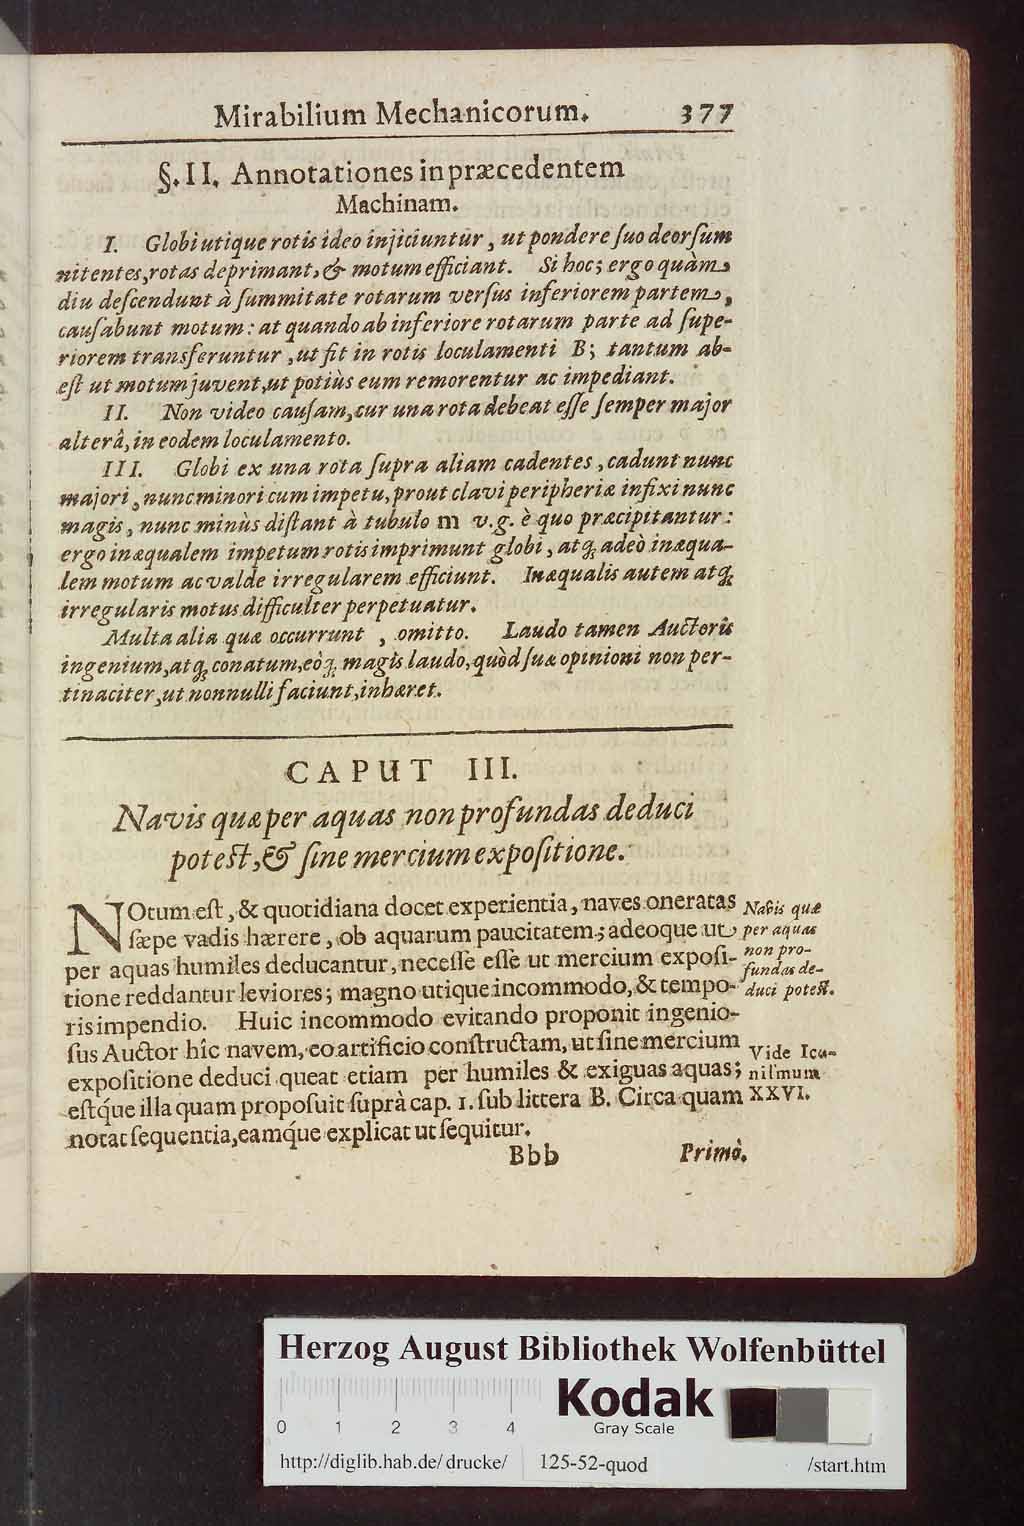 Mirabilium Mechanicorum. 377
§. II. Annotationes in præcedentem
Machinam.
I. Globi utique rotis ideo injiciuntur, ut pondere ſuo deorſum
nitentes, rotas deprimant, & motum efficiant. Si hoc; ergo quàm
diu deſcendunt à ſummitate rotarum verſus inferiorem partem,
cauſabunt motum: at quando ab inferiore rotarum parte ad ſupe-
riorem transferuntur, ut fit in rotis loculamenti B; tantum ab-
eſt ut motum juvent, ut potiùs eum remorentur ac impediant.
II. Non video cauſam, cur una rota debeat eſſe ſemper major
alterâ, in eodem loculamento.
III. Globi ex una rota ſupra aliam cadentes, cadunt nunc
majori, nunc minori cum impetu, prout clavi peripheriæ infixi nunc
magis, nunc minùs diſtant à tubulo m v.g. è quo præcipitantur:
ergo inæqualem impetum rotis imprimunt globi, atq; adeò inæqua-
lem motum ac valde irregularem efficiunt. Inæqualis autem atq;
irregularis motus difficulter perpetuatur.
Multa alia quæ occurrunt, omitto. Laudo tamen Auctoris
ingenium, atq; conatum, eòq; magis laudo, quòd ſuæ opinioni non per-
tinaciter, ut nonnulli faciunt, inhæret.
CAPUT III.
Navis quæ per aquas non profundas deduci
poteſt, & ſine mercium expoſitione.
NOtum eſt, & quotidiana docet experientia, naves oneratas
ſæpe vadis hærere, ob aquarum paucitatem; adeoque ut
per aquas humiles deducantur, neceſſe eſſe ut mercium expoſi-
tione reddantur leviores; magno utique incommodo, & tempo-
ris impendio. Huic incommodo evitando proponit ingenio-
ſus Auctor hîc navem, eo artificio conſtructam, ut ſine mercium
expoſitione deduci queat etiam per humiles & exiguas aquas;
eſtq́ue illa quam propoſuit ſuprà cap. 1. ſub littera B. Circa quam
notat ſequentia, eamq́ue explicat ut ſequitur.
Navis quæ
per aquas
non pro-
fundas de-
duci poteſt.
Vide Ico-
niſmum
XXVI.
Bbb Primò,
Herzog August Bibliothek Wolfenbüttel
0 1 2 3 4
Kodak
Gray Scale
http://diglib.hab.de/drucke/ 125-52-quod /start.htm